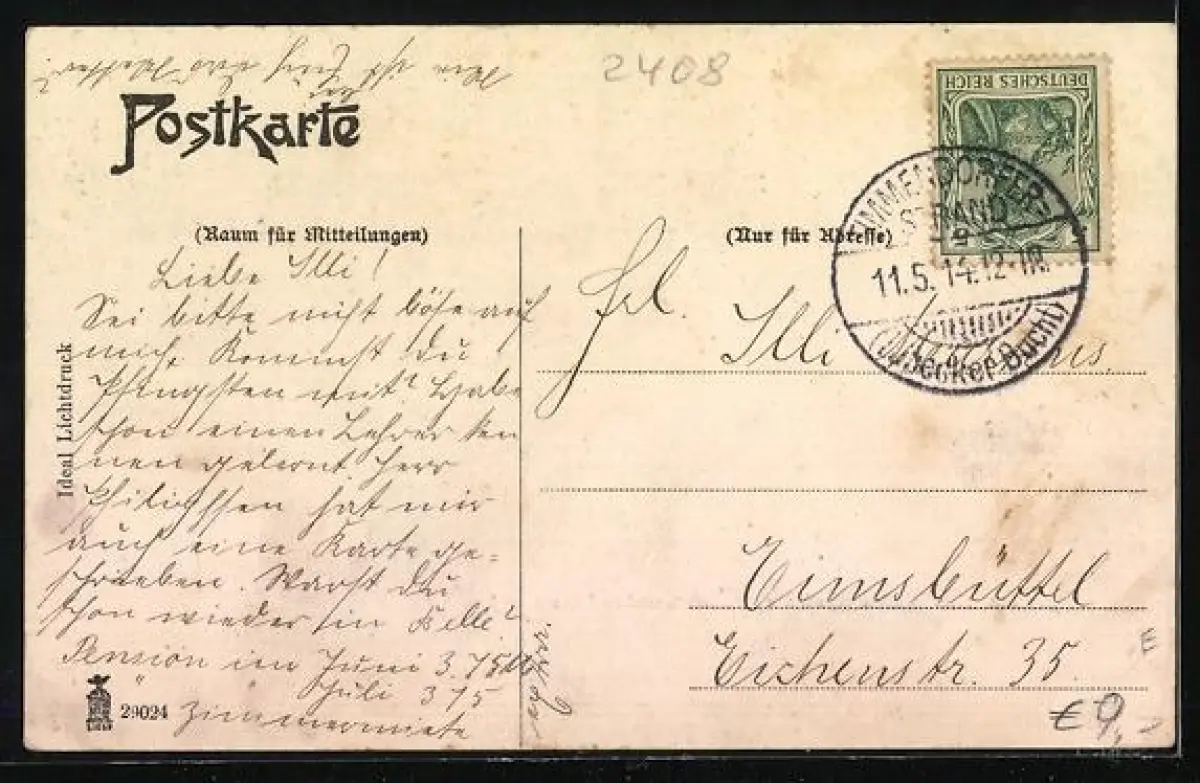 2408
Postkarte
DEUTSCHES REICH
(Raum für Mitteilungen)
(Nur für Adresse)
TIMMENDORFER=
STRAND
11.5.14.12-1N.
(Lübecker Bucht)
Liebe Illi!
Sei bitte nicht böse auf
mich. Kommst Du
Pfingsten mit? Habe
schon einen Lehrer ken
nen gelernt Herr
hat mir
auch eine Karte ge=
schrieben. Warst Du
schon wieder in Celle?
Pension im Juni 3.75
Juli 375
Zimmermiete
Frl.
Illi
Eimsbüttel
Eichenstr. 35.
Ideal Lichtdruck
29024
E
€ 9,-